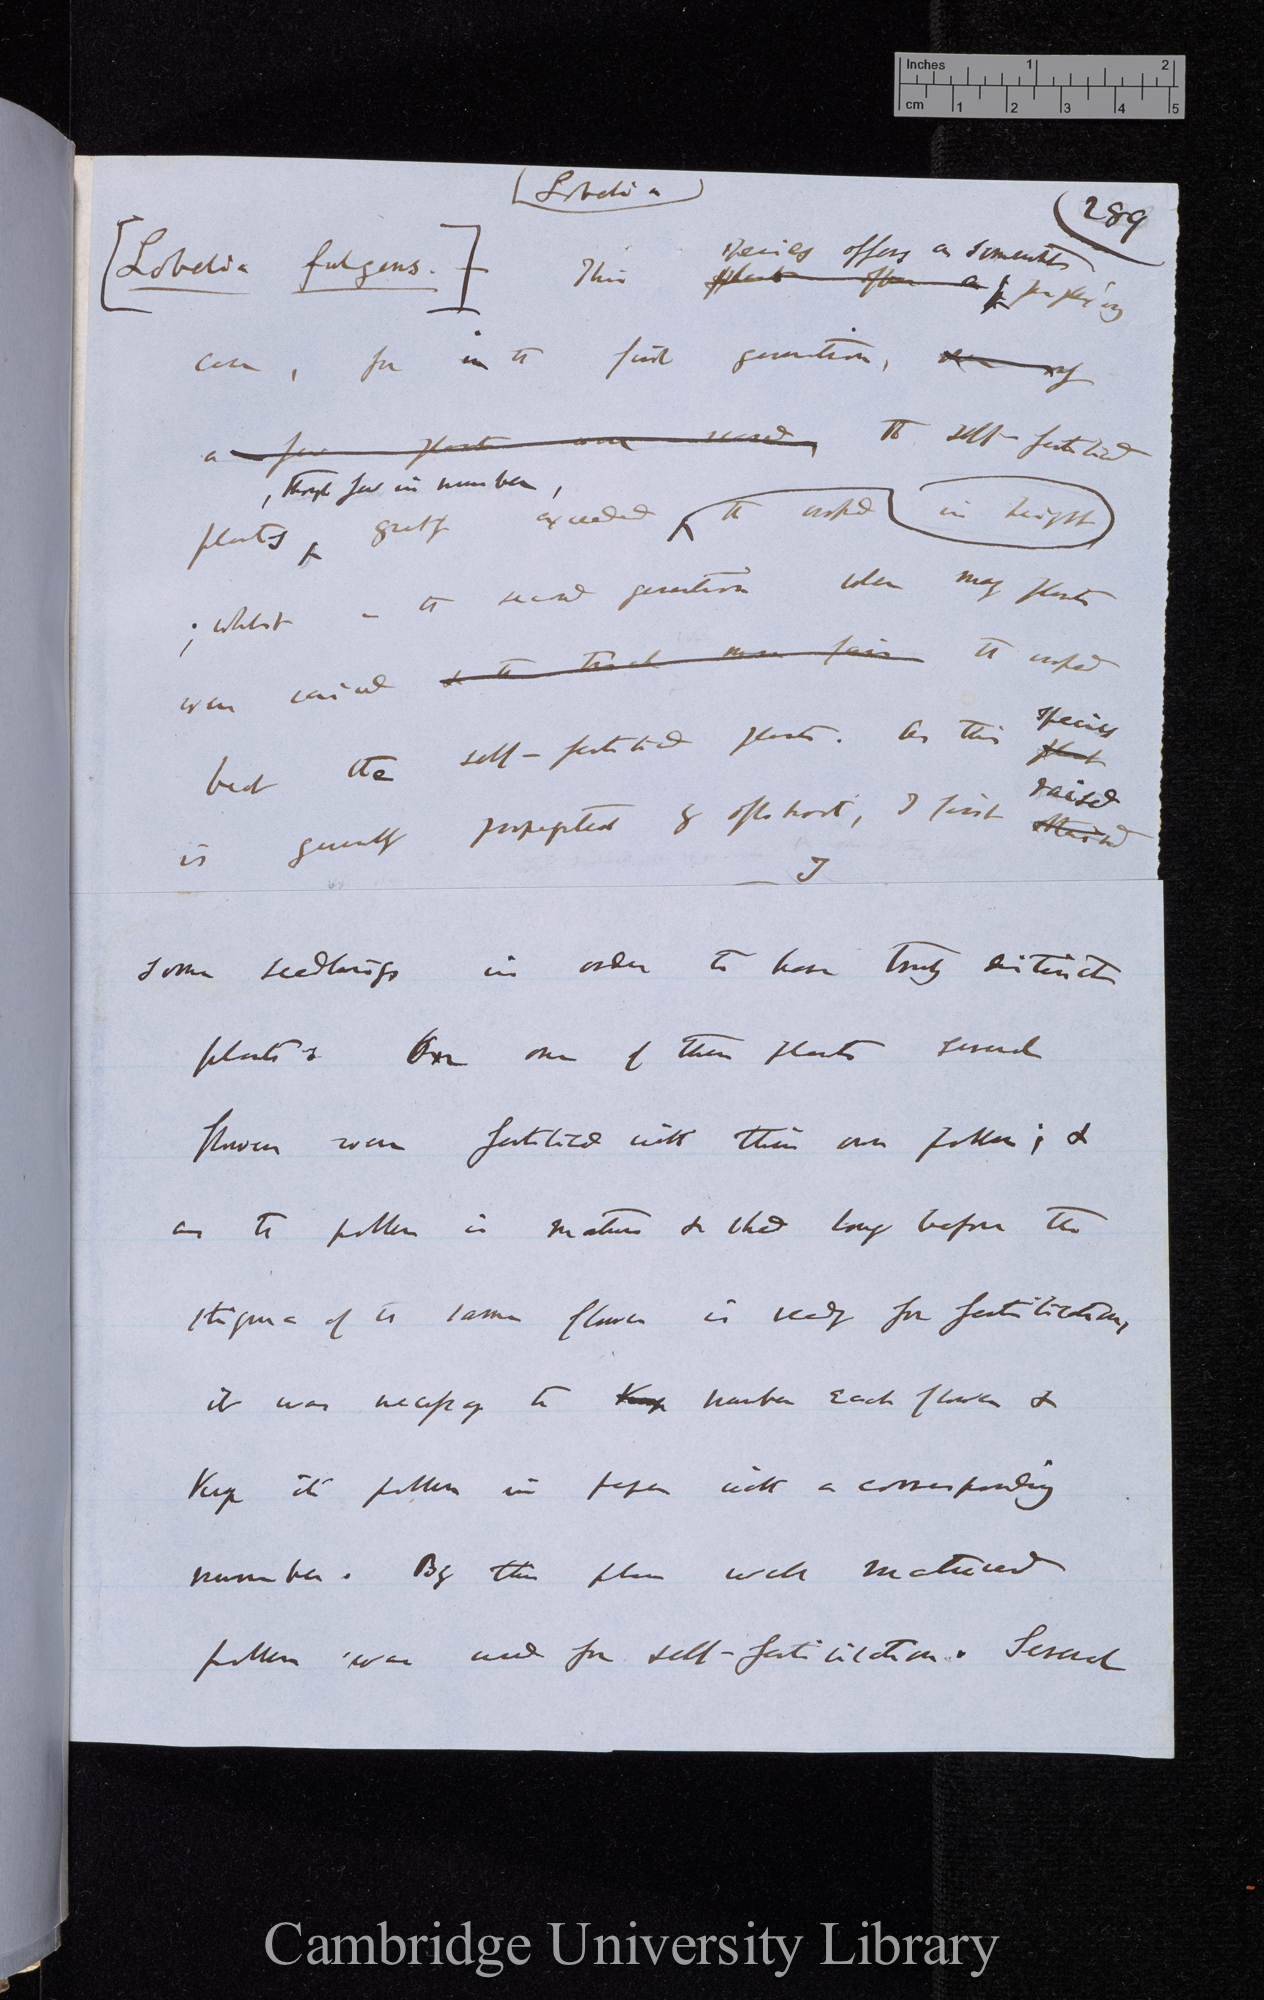 Inches 1 2
cm 1 2 3 4 5
(Lobelia)
289
species offers a somewhat
[Lobelia fulgens.]— This plant offers a perplexing
case, for in the first generation,
a few plants were raised, the self-fertilised
, though few in number,
plants, greatly exceeded the crossed in height
; whilst in the second generation when many plants
were raised & the trial more fair the crossed
species
beat the self-fertilised plants. As this plant
raised
is generally propagated by offshoots, I first
I
some seedlings in order to have truly distinct
plants On one of these plants several
flowers were fertilised with their own pollen; &
as the pollen is mature & shed long before the
stigma of the same flower is ready for fertilisation,
it was necessary to keep number each flower &
keep its pollen in paper with a corresponding
number. By this plan well matured
pollen was used for self-fertilisation. Several
Cambridge University Library